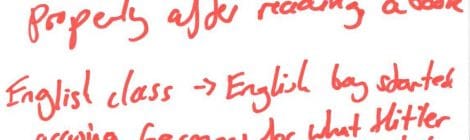 Properly after reading a book
English class → English boy started
Germany for what Hitler